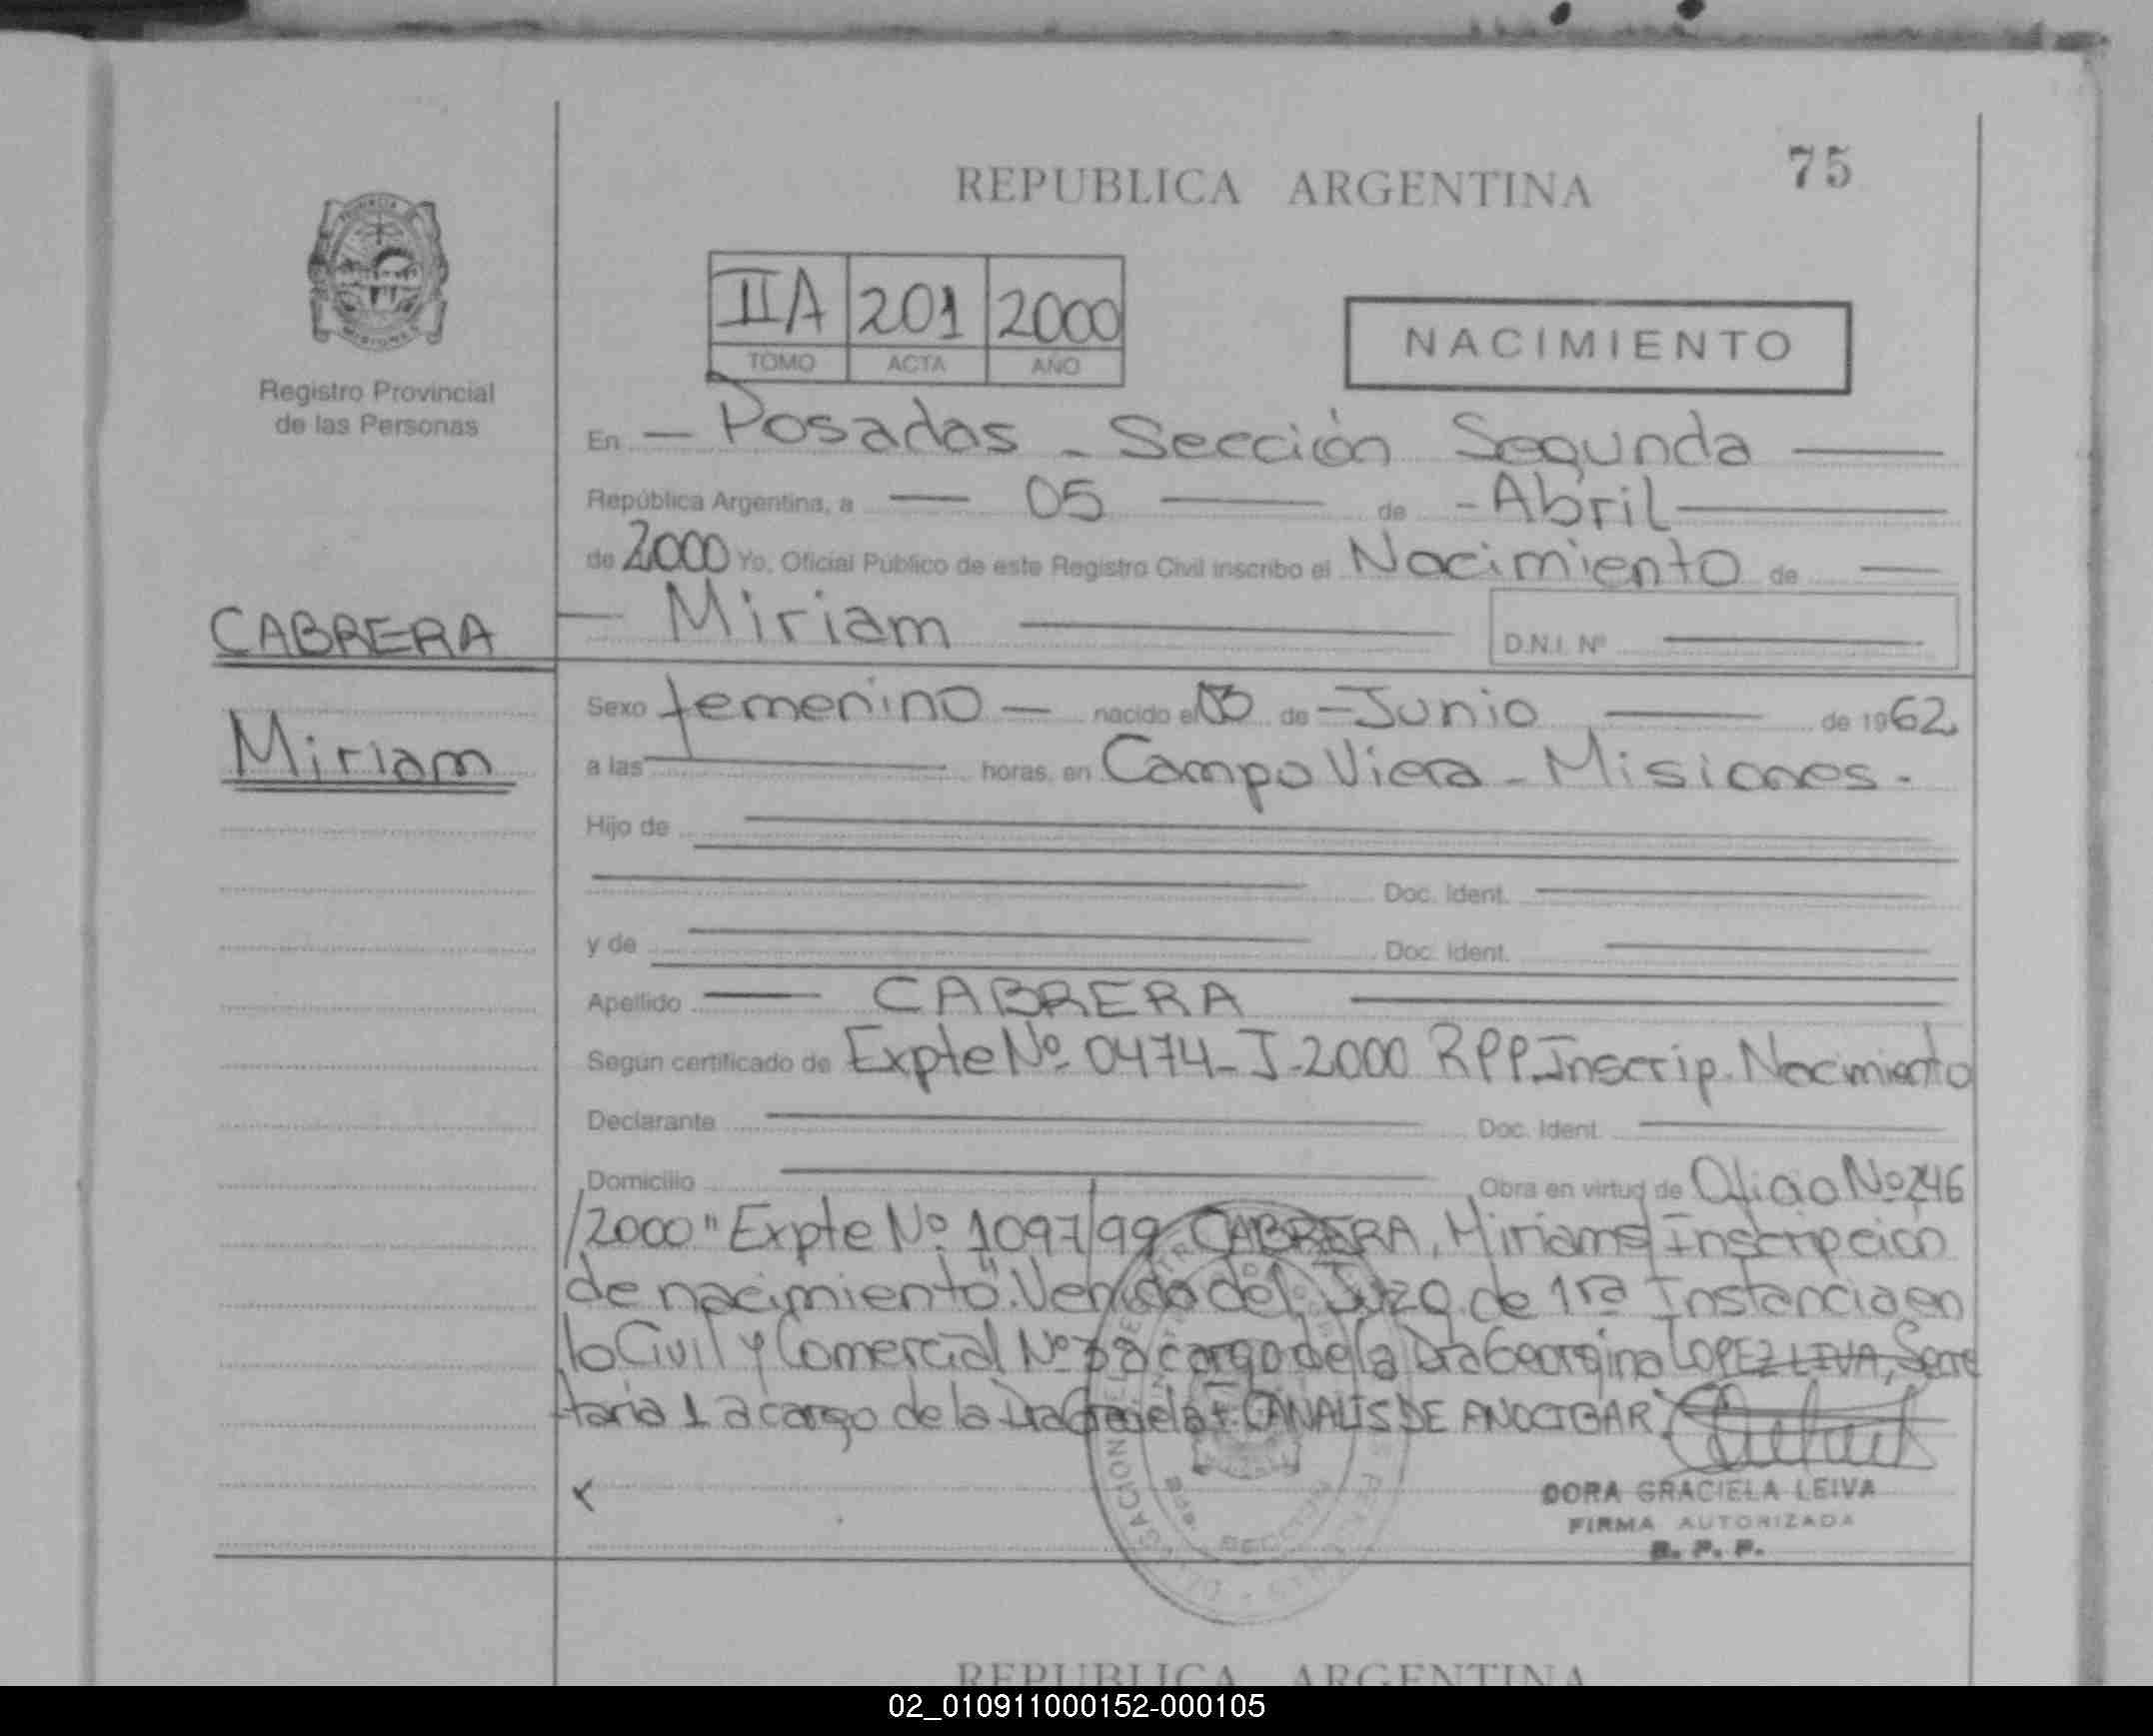 75
REPUBLICA ARGENTINA
IIA 201 2000
TOMO ACTA AÑO
NACIMIENTO
Registro Provincial
de las Personas
En — Posadas - Sección Segunda —
República Argentina, a — 05 — de - Abril —
de 2000 Yo, Oficial Público de este Registro Civil inscribo el Nacimiento de —
CABRERA
— Miriam — D.N.I. Nº —
Miriam
Sexo femenino — nacido el 03 de - Junio — de 1962
a las — horas, en Campo Viera - Misiones.
Hijo de —
— Doc. Ident. —
y de — Doc. Ident. —
Apellido — CABRERA —
Según certificado de Expte Nº 0474-J-2000 RPP. Inscrip. Nacimiento
Declarante — Doc. Ident. —
Domicilio — Obra en virtud de Oficio Nº 246
/2000 "Expte Nº 1097/99 CABRERA, Miriam s/ Inscripción
de nacimiento". Venido del Juzg. de 1ra Instancia en
lo Civil y Comercial Nº a cargo de la Dra Georgina LOPEZ LEIVA, Secre
taria 1 a cargo de la Dra Graciela CANALIS DE
DORA GRACIELA LEIVA
FIRMA AUTORIZADA
R. P. P.
REPUBLICA ARGENTINA
02_010911000152-000105